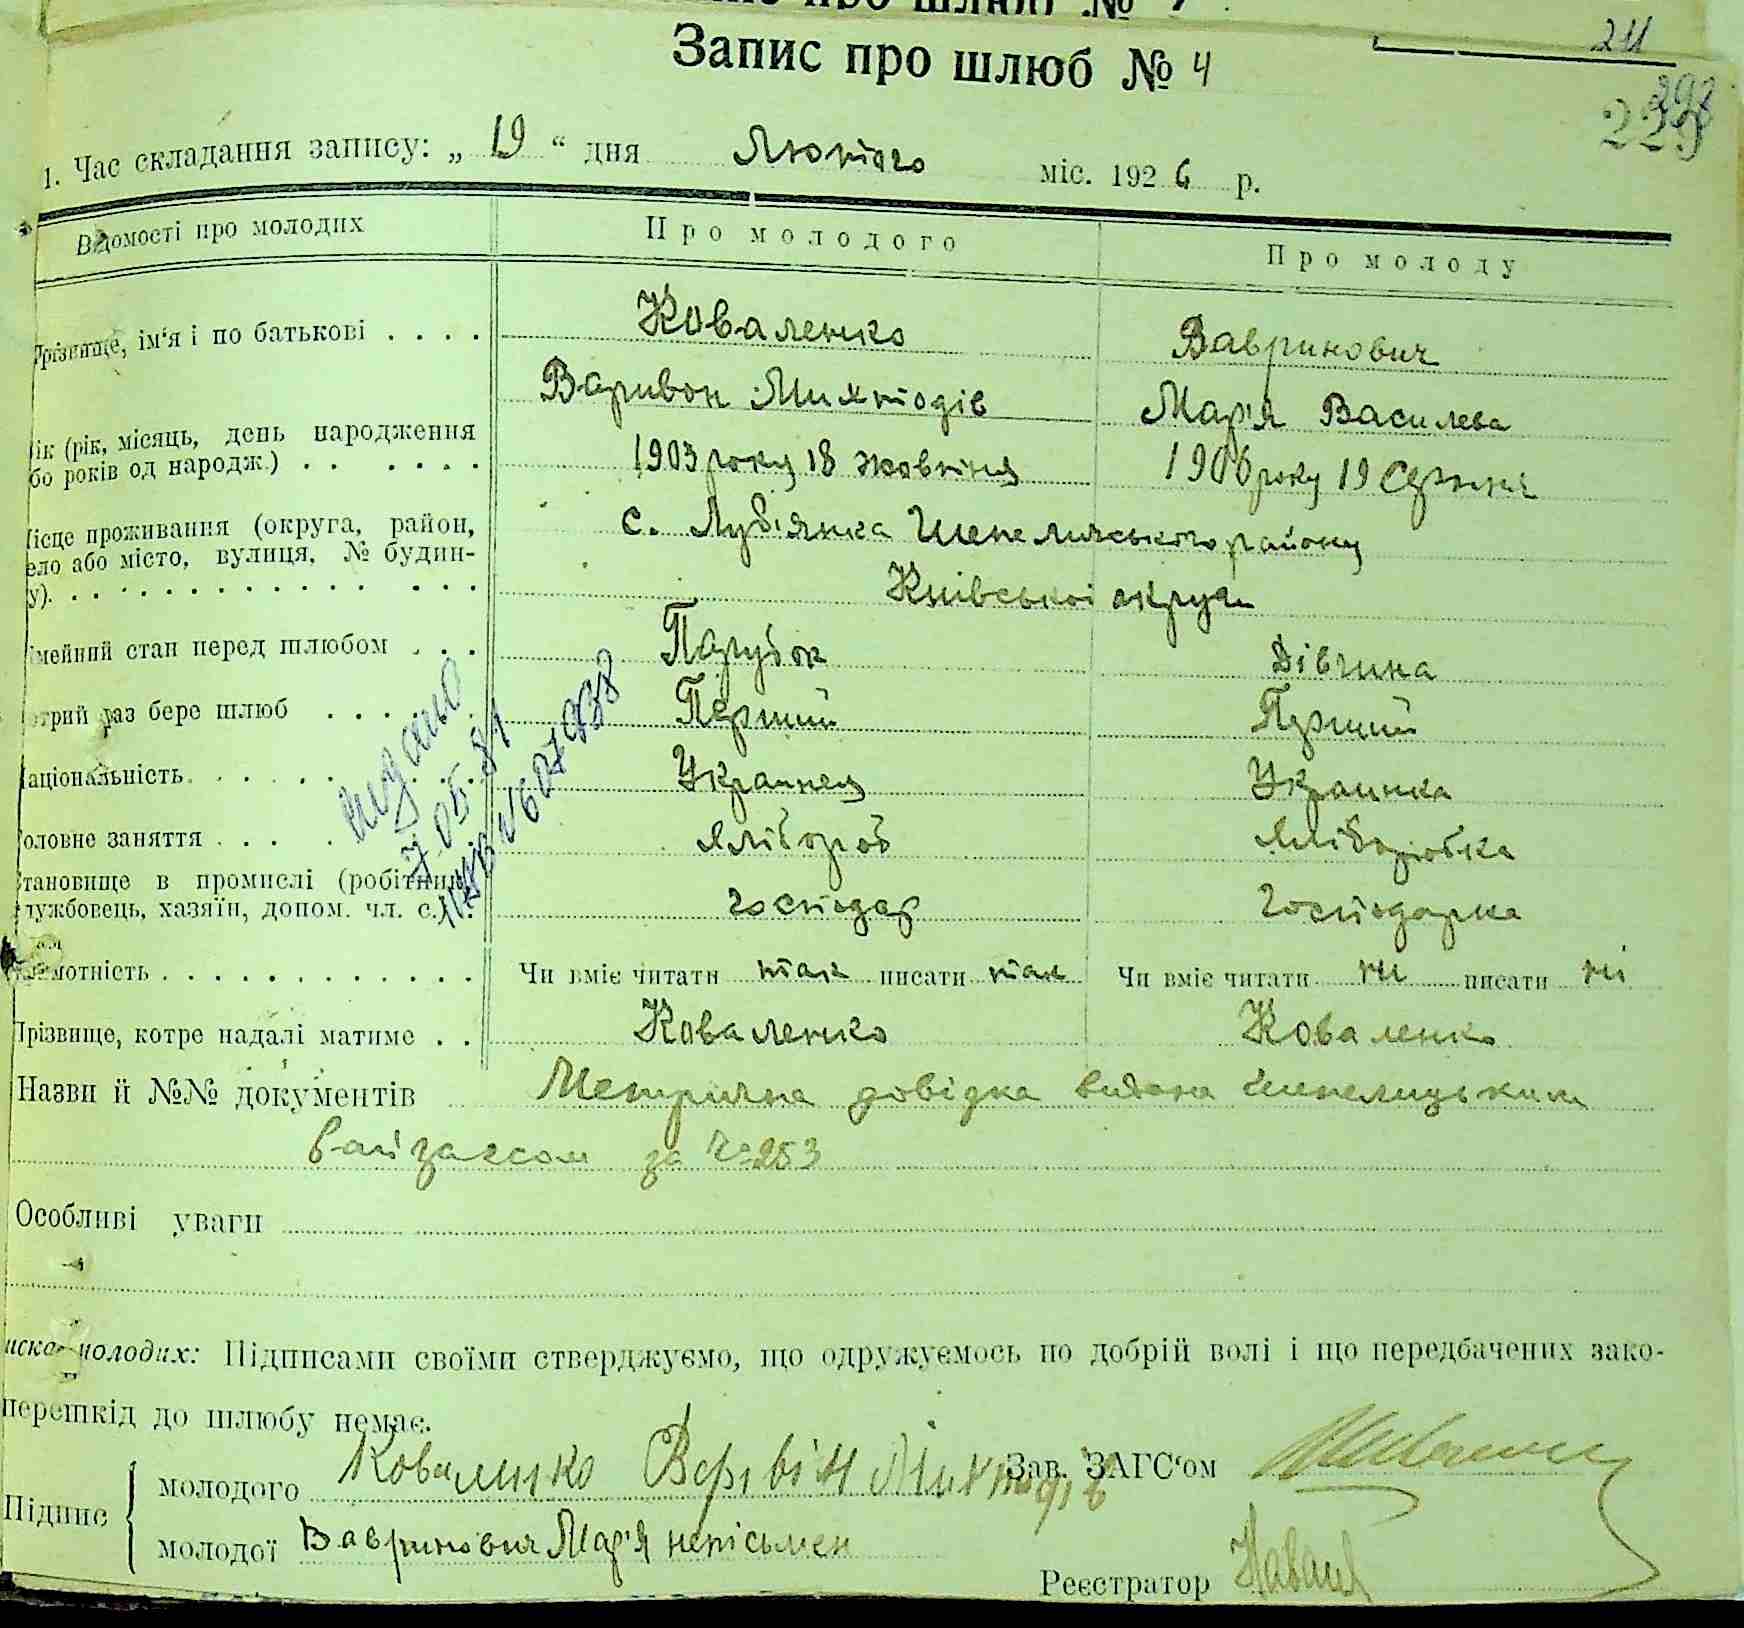 Запис про шлюб № 4
24
1. Час складання запису: „ 19 “ дня Лютого міс. 1926 р.
Відомості про молодих Про молодого Про молоду
Прізвище, ім‘я і по батькові . . . . Коваленко Вавринович
Варивон Михтодів Мар'я Василева
Вік (рік, місяць, день народження
або років од народж.) . . . . . . 1903 року 18 жовтня 1906 року 19 Серпня
Місце проживання (округа, район, с. Луб'янка Шепелицького району
село або місто, вулиця, № будин-
ку). . . . . . . . . . . . . . . Київської округи
Сімейний стан перед шлюбом . . . Парубок Дівчина
Котрий раз бере шлюб . . . . . . Перший Перший
Національність . . . . . . . . Украинец Украинка
Головне заняття . . . . Хлібороб Хліборобка
Становище в промислі (робітник,
службовець, хазяїн, допом. чл. с.) Господар Господарка
видано
Грамотність . . . . . . . . . . . . Чи вміє читати так писати так Чи вміє читати ни писати ні
Прізвище, котре надалі матиме . . Коваленко Коваленко
Назви й №№ документів Метрична довідка видана Шепелицьким
Райзагсом за № 253
Особливі уваги
иска молодих: Підписами своїми стверджуємо, що одружуємось по добрій волі і що передбачених зако-
перешкід до шлюбу немає.
Підпис молодого Коваленко Варівін Михтодів Зав. ЗАГС‘ом
молодої Вавринович Мар'я непісьмен
Реєстратор